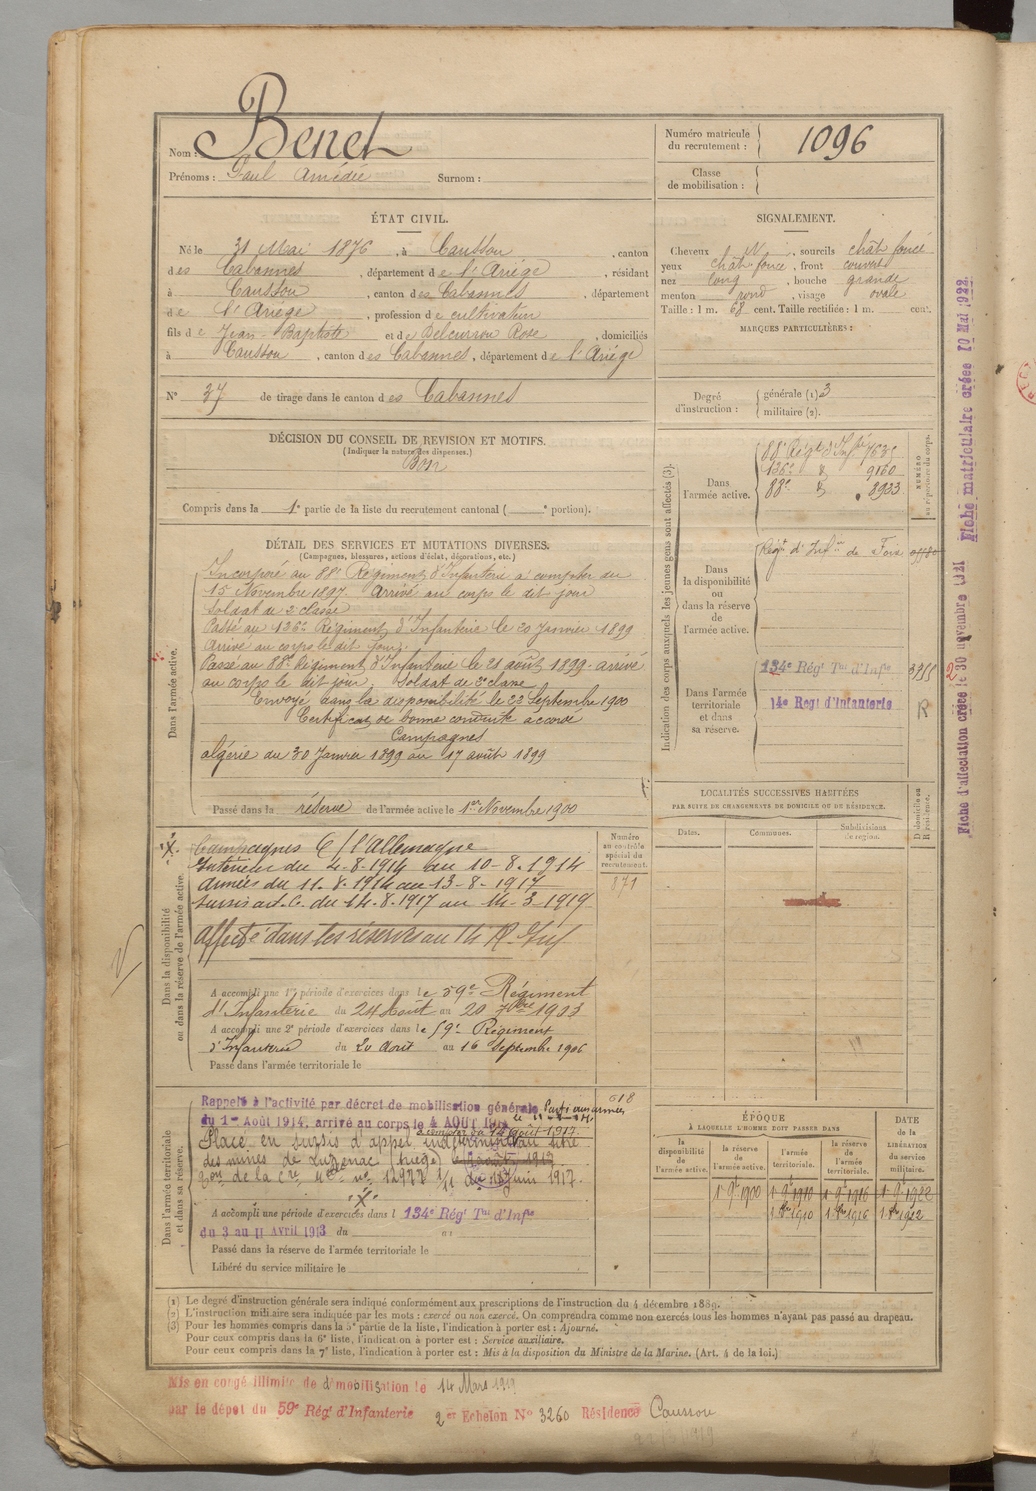 Nom : Benet
Prénoms : Paul Amédée Surnom :
Numéro matricule du recrutement : 1096
Classe de mobilisation :
ÉTAT CIVIL.
Né le 31 Mai 1876, à Caussou, canton
des Cabannes, département de l'Ariège, résidant
à Caussou, canton des Cabannes, département
de l'Ariège, profession de cultivateur
fils de Jean-Baptiste et de Delcurrou Rose, domiciliés
à Caussou, canton des Cabannes, département de l'Ariège
N° 37 de tirage dans le canton des Cabannes
SIGNALEMENT.
Cheveux N, sourcils chât foncé
yeux chât foncé, front couvert
nez long, bouche grande
menton rond, visage ovale
Taille : 1 m. 68 cent. Taille rectifiée : 1 m. cent.
MARQUES PARTICULIÈRES :
Degré d'instruction : générale (1) 3
militaire (2).
DÉCISION DU CONSEIL DE REVISION ET MOTIFS.
(Indiquer la nature des dispenses.)
Bon
Compris dans la 1e partie de la liste du recrutement cantonal ( e portion).
DÉTAIL DES SERVICES ET MUTATIONS DIVERSES.
(Campagnes, blessures, actions d'éclat, décorations, etc.)
Dans l'armée active.
Incorporé au 88e Régiment d'Infanterie à compter du
15 Novembre 1897. Arrivé au corps le dit jour
Soldat de 2e classe
Passé au 136e Régiment d'Infanterie le 20 Janvier 1899
Arrivé au corps le dit jour
Passé au 88e Régiment d'Infanterie le 21 août 1899 arrivé
au corps le dit jour. Soldat de 2e classe
Envoyé dans la disponibilité le 22 Septembre 1900
Certificat de bonne conduite accordé
Campagnes
Algérie du 30 Janvier 1899 au 17 août 1899
Passé dans la réserve de l'armée active le 1er Novembre 1900
Indication des corps auxquels les jeunes gens sont affectés (3).
NUMÉRO au répertoire du corps.
Dans l'armée active.
88e Régt d'Infie 7635
136e d° 9160
88e d° 8933
Dans la disponibilité ou dans la réserve de l'armée active.
Régt d'Infie de Foix
Dans l'armée territoriale et dans sa réserve.
134e Régt Tal d'Infie 3755
14e Regt d'Infanterie R
2
LOCALITÉS SUCCESSIVES HABITÉES
PAR SUITE DE CHANGEMENTS DE DOMICILE OU DE RÉSIDENCE.
Dates. Communes. Subdivisions de région. D domicile ou R résidence.
Dans la disponibilité ou dans la réserve de l'armée active.
Numéro au contrôle spécial du recrutement.
871
Campagnes C/ l'Allemagne
Intérieur du 4-8-1914 au 10-8-1914
Armées du 11-8-1914 au 13-8-1917
Sursis art. C. du 14-8-1917 au 14-3-1919
Affecté dans les réserves au 14 R. Inf
A accompli une 1re période d'exercices dans le 59e Régiment
d'Infanterie du 24 Août au 20 7bre 1903
A accompli une 2e période d'exercices dans le 59e Régiment
d'Infanterie du 20 Août au 16 Septembre 1906
Passé dans l'armée territoriale le
Dans l'armée territoriale et dans sa réserve.
618
Rappelé à l'activité par décret de mobilisation générale Parti aux armées
du 1er Août 1914, arrivé au corps le 4 AOUT 1914
à compter du 14 août 1917.
Placé en sursis d'appel indéterminé au titre
des mines de Luzenac (Ariège)
12977 du 11 juin 1917.
A accompli une période d'exercices dans l 134e Régt Tal d'Infie
du 3 au 11 Avril 1913 du au
Passé dans la réserve de l'armée territoriale le
Libéré du service militaire le
ÉPOQUE
À LAQUELLE L'HOMME DOIT PASSER DANS
la disponibilité de l'armée active. la réserve de l'armée active. l'armée territoriale. la réserve de l'armée territoriale. DATE de la LIBÉRATION du service militaire.
1 9e 1900 1 9e 1910 1 9e 1916 1 9e 1922
1 8e 1910 1 8e 1916 1 8e 1922
(1) Le degré d'instruction générale sera indiqué conformément aux prescriptions de l'instruction du 4 décembre 1889.
(2) L'instruction militaire sera indiquée par les mots : exercé ou non exercé. On comprendra comme non exercés tous les hommes n'ayant pas passé au drapeau.
(3) Pour les hommes compris dans la 5e partie de la liste, l'indication à porter est : Ajourné.
Pour ceux compris dans la 6e liste, l'indication à porter est : Service auxiliaire.
Pour ceux compris dans la 7e liste, l'indication à porter est : Mis à la disposition du Ministre de la Marine. (Art. 4 de la loi.)
Mis en congé illimité de démobilisation le 14 Mars 1919
par le dépôt du 59e Régt d'Infanterie 2er Echelon N° 3260 Résidence Caussou
Fiche d'affectation créée le 30 novembre 1921 Fiche matriculaire créée 10 Mai 1922